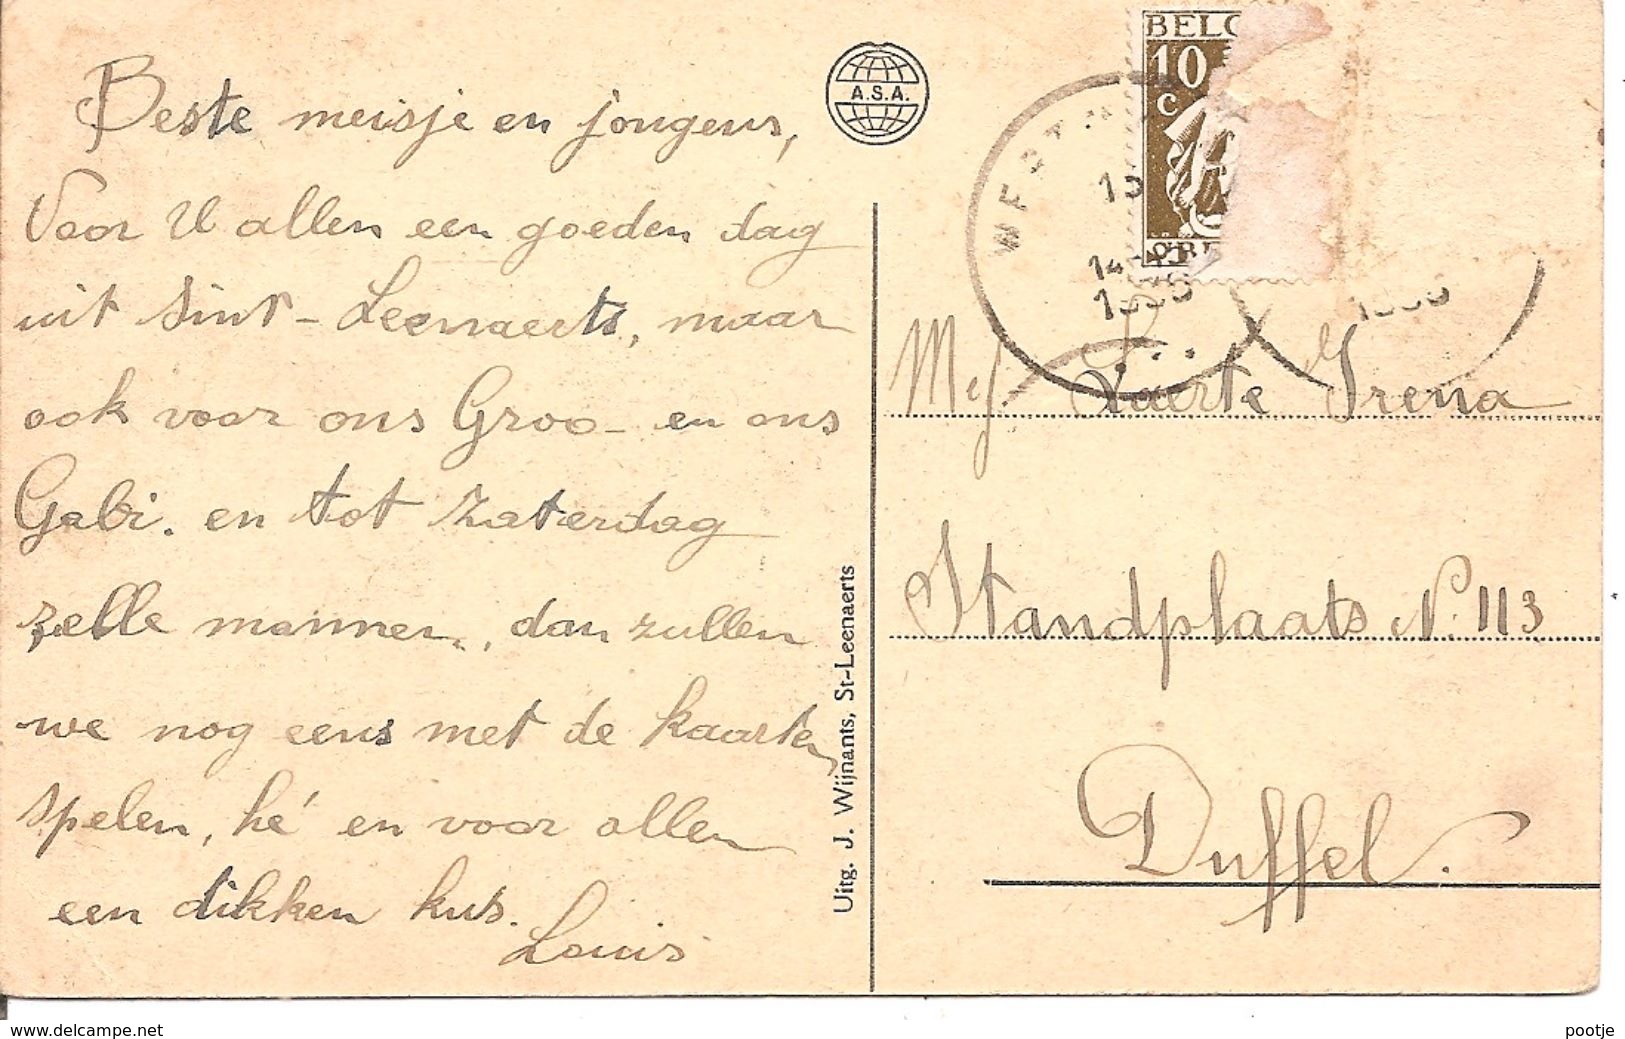 Beste meisje en jongens,
Voor U allen een goeden dag
uit Sint-Leenaerts, maar
ook voor ons Groo- en ons
Gabi. en tot Zaterdag
zelle mannen, dan zullen
we nog eens met de kaarten
spelen, hé en voor allen
een dikken kus.
Louis
Uitg. J. Wijnants, St-Leenaerts
A.S.A.
BELG
10
C
WEST
Mej Laerte Irena
Standplaats N. 113
Duffel.
delcampe.net
pootje